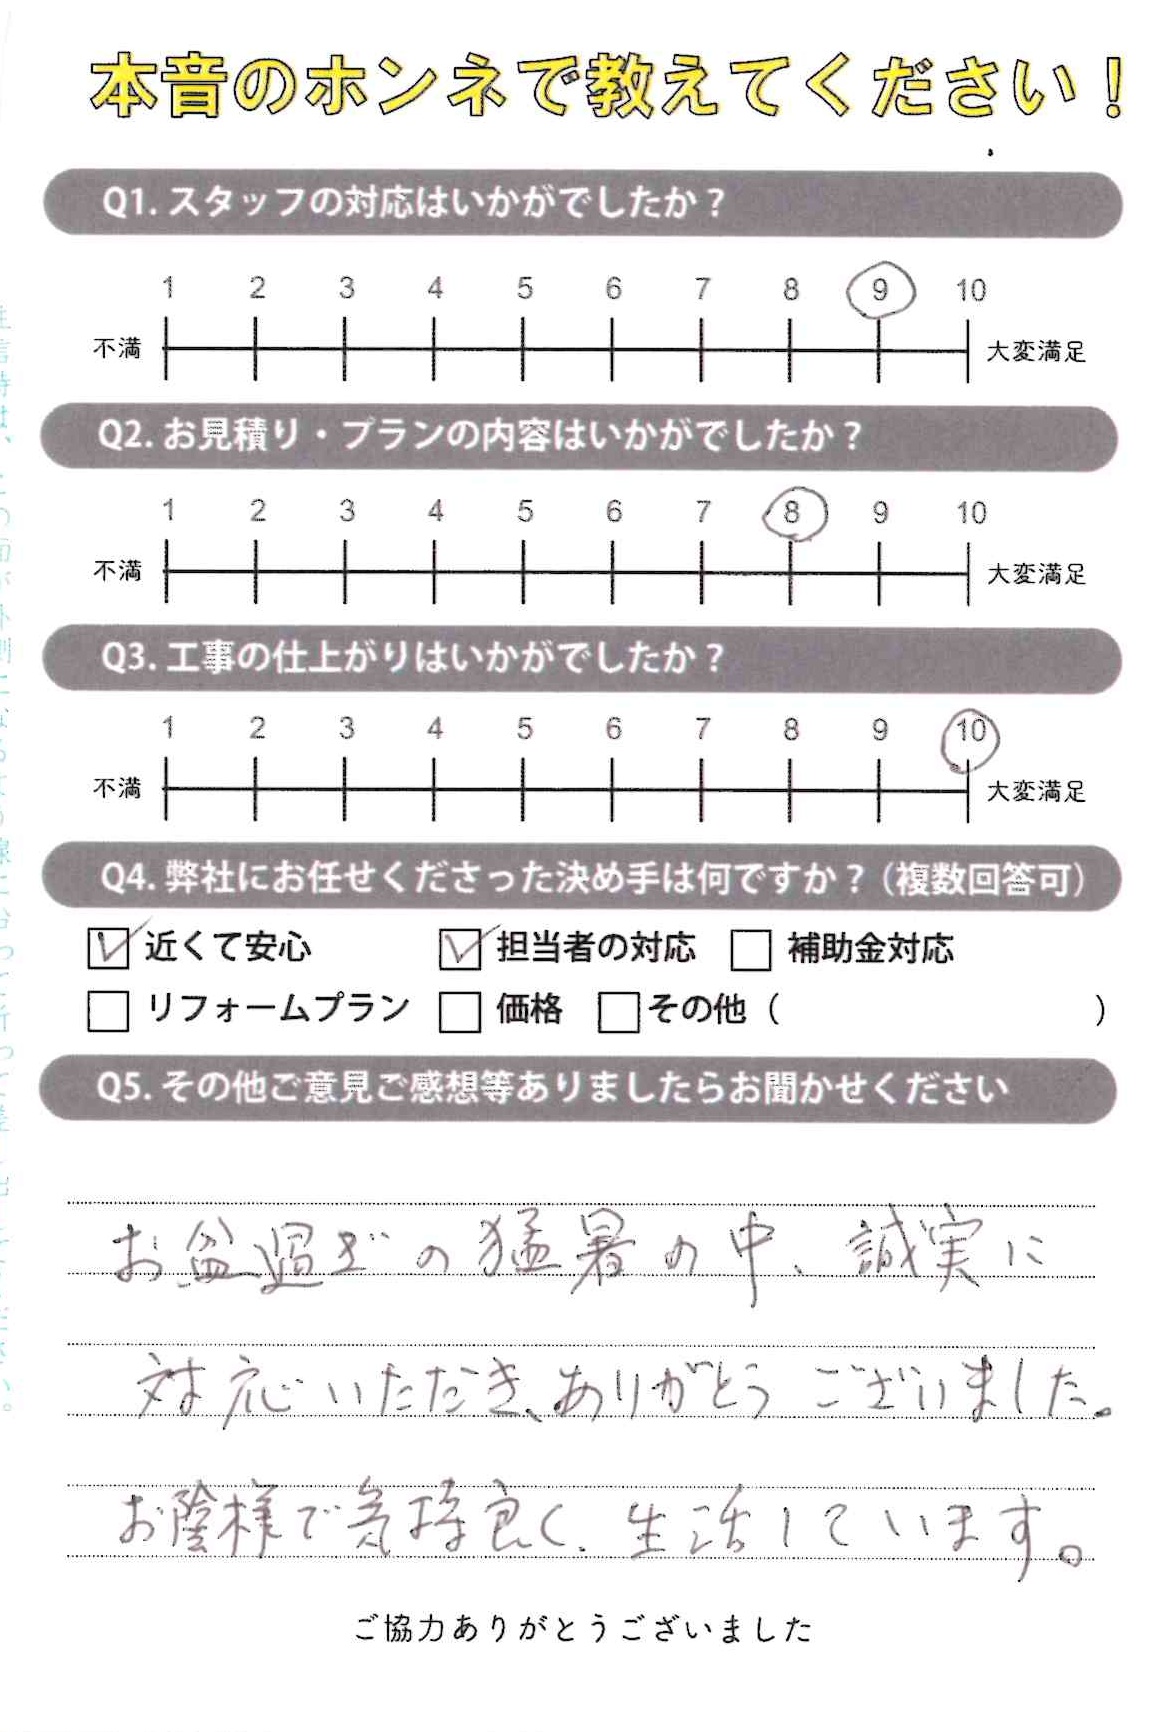 本音のホンネで教えてください！
Q1. スタッフの対応はいかがでしたか？
1 2 3 4 5 6 7 8 9 10
不満 大変満足
Q2. お見積り・プランの内容はいかがでしたか？
1 2 3 4 5 6 7 8 9 10
不満 大変満足
Q3. 工事の仕上がりはいかがでしたか？
1 2 3 4 5 6 7 8 9 10
不満 大変満足
Q4. 弊社にお任せくださった決め手は何ですか？（複数回答可）
近くて安心 担当者の対応 補助金対応
リフォームプラン 価格 その他（ ）
Q5. その他ご意見ご感想等ありましたらお聞かせください
お盆過ぎの猛暑の中、誠実に
対応いただき、ありがとうございました。
お陰様で気持良く、生活しています。
ご協力ありがとうございました